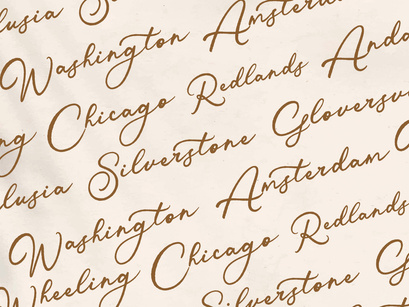 lusia S
Washington Amsterdam
ng Chicago Redlands Anda
lusia Silverstone Gloversv
Washington Amsterdam
Wheeling Chicago Redlands
Silverstone G